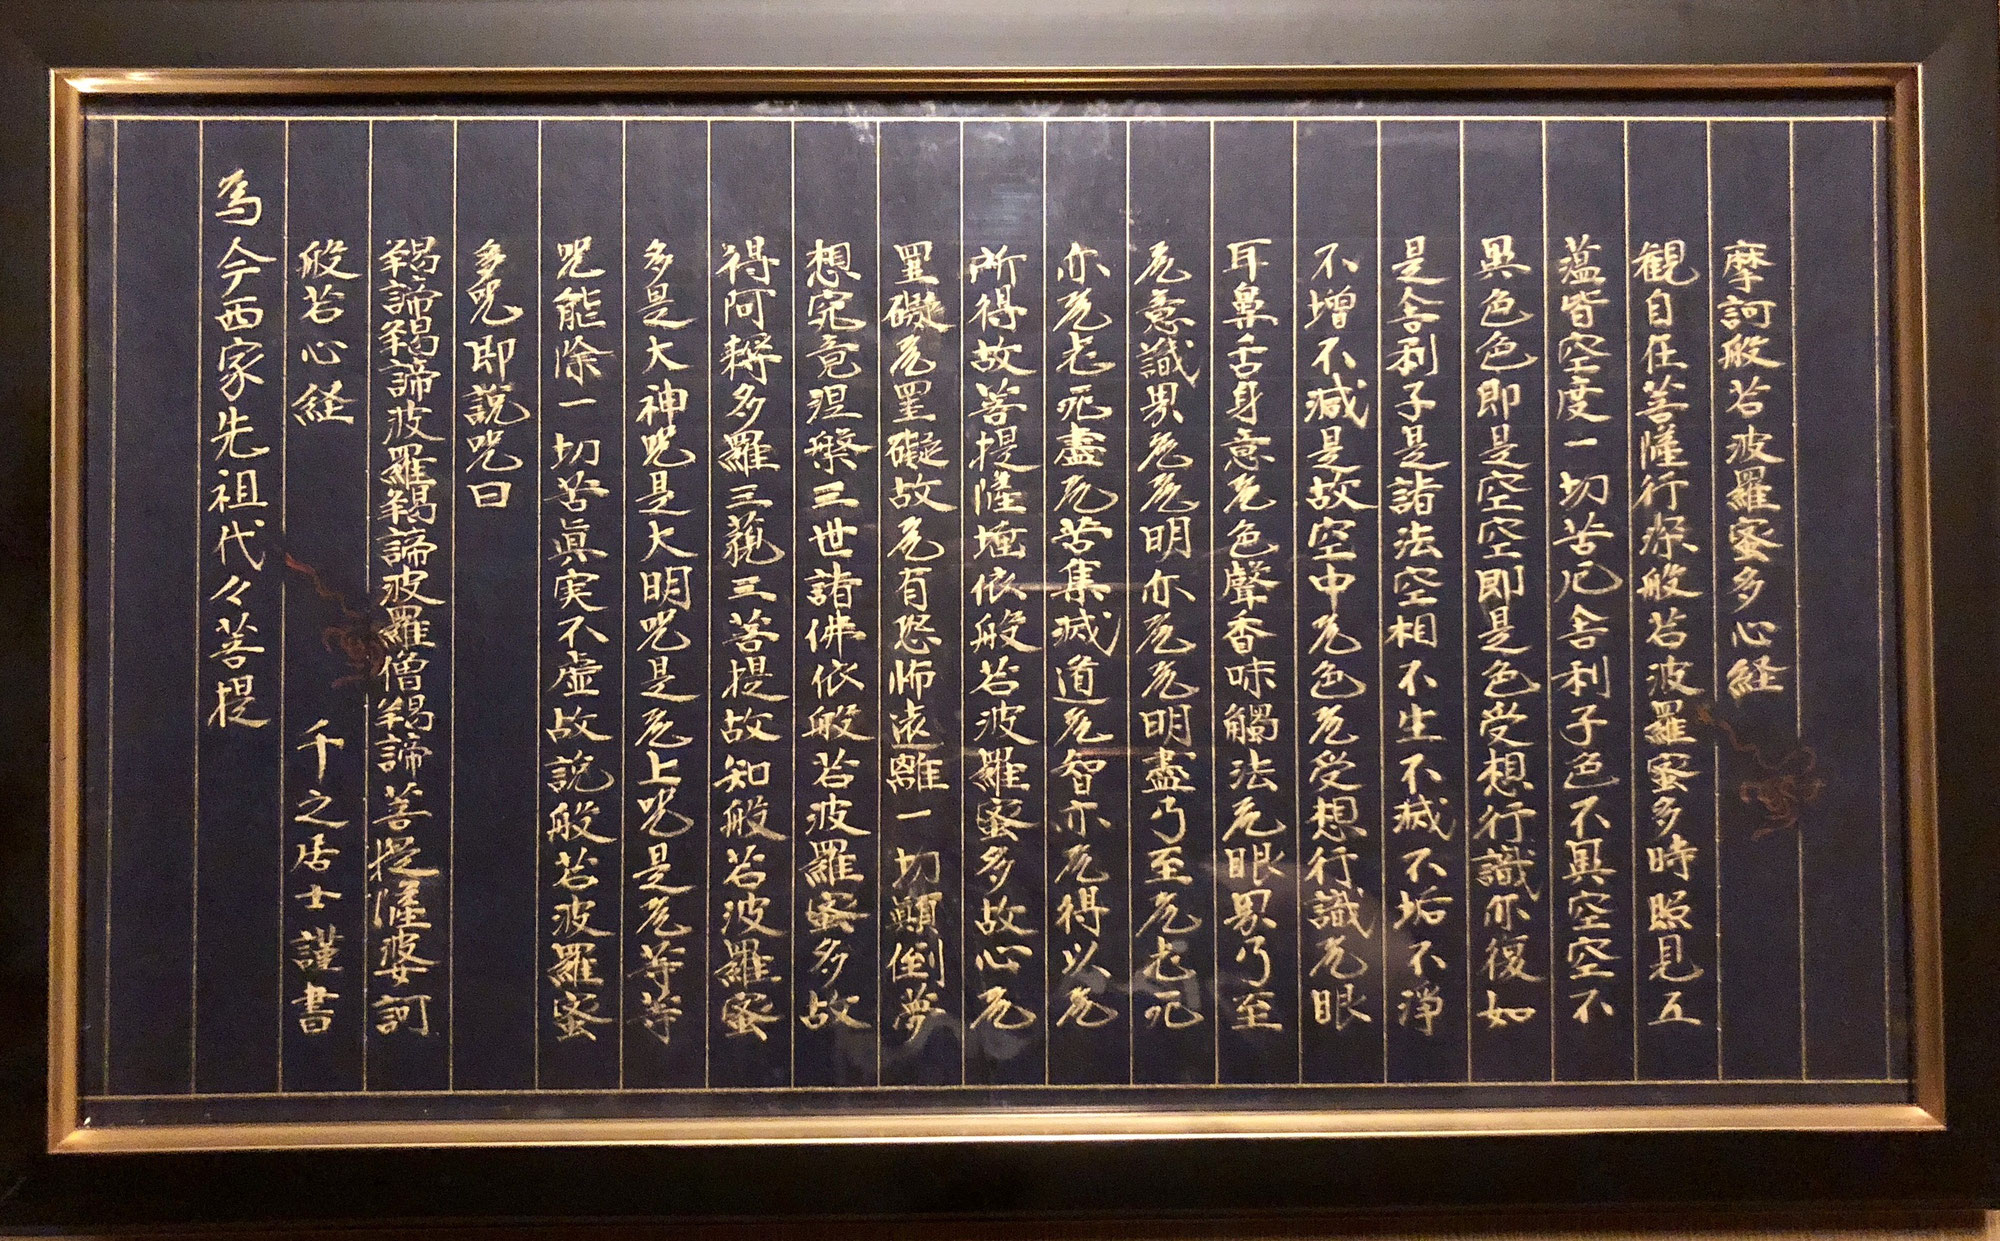 摩訶般若波羅蜜多心経
観自在菩薩行深般若波羅蜜多時照見五
蘊皆空度一切苦厄舎利子色不異空空不
異色色即是空空即是色受想行識亦復如
是舎利子是諸法空相不生不滅不垢不淨
不増不減是故空中无色无受想行識无眼
耳鼻舌身意无色聲香味觸法无眼界乃至
无意識界无无明亦无无明盡乃至无老死
亦无老死盡无苦集滅道无智亦无得以无
所得故菩提薩埵依般若波羅蜜多故心无
罣礙无罣礙故无有恐怖遠離一切顛倒夢
想究竟涅槃三世諸佛依般若波羅蜜多故
得阿耨多羅三藐三菩提故知般若波羅蜜
多是大神呪是大明呪是无上呪是无等等
呪能除一切苦眞実不虚故説般若波羅蜜
多呪即説呪曰
羯諦羯諦波羅羯諦波羅僧羯諦菩提薩婆訶
般若心経 千之居士謹書
為今西家先祖代々菩提